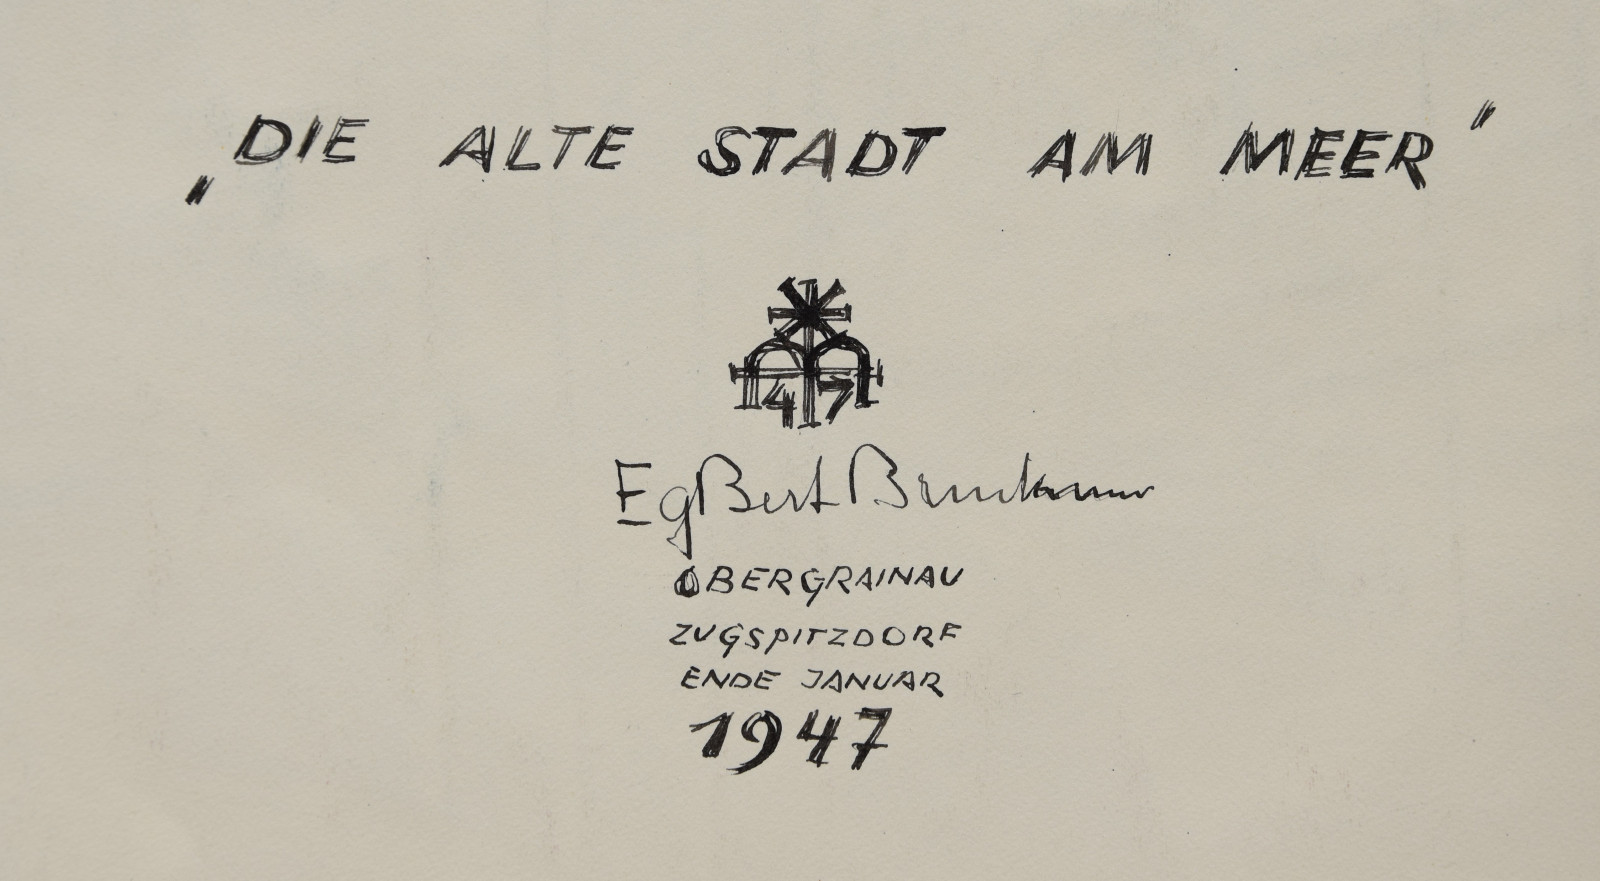 „DIE ALTE STADT AM MEER"
47
EgBert
OBERGRAINAU
ZUGSPITZDORF
ENDE JANUAR
1947